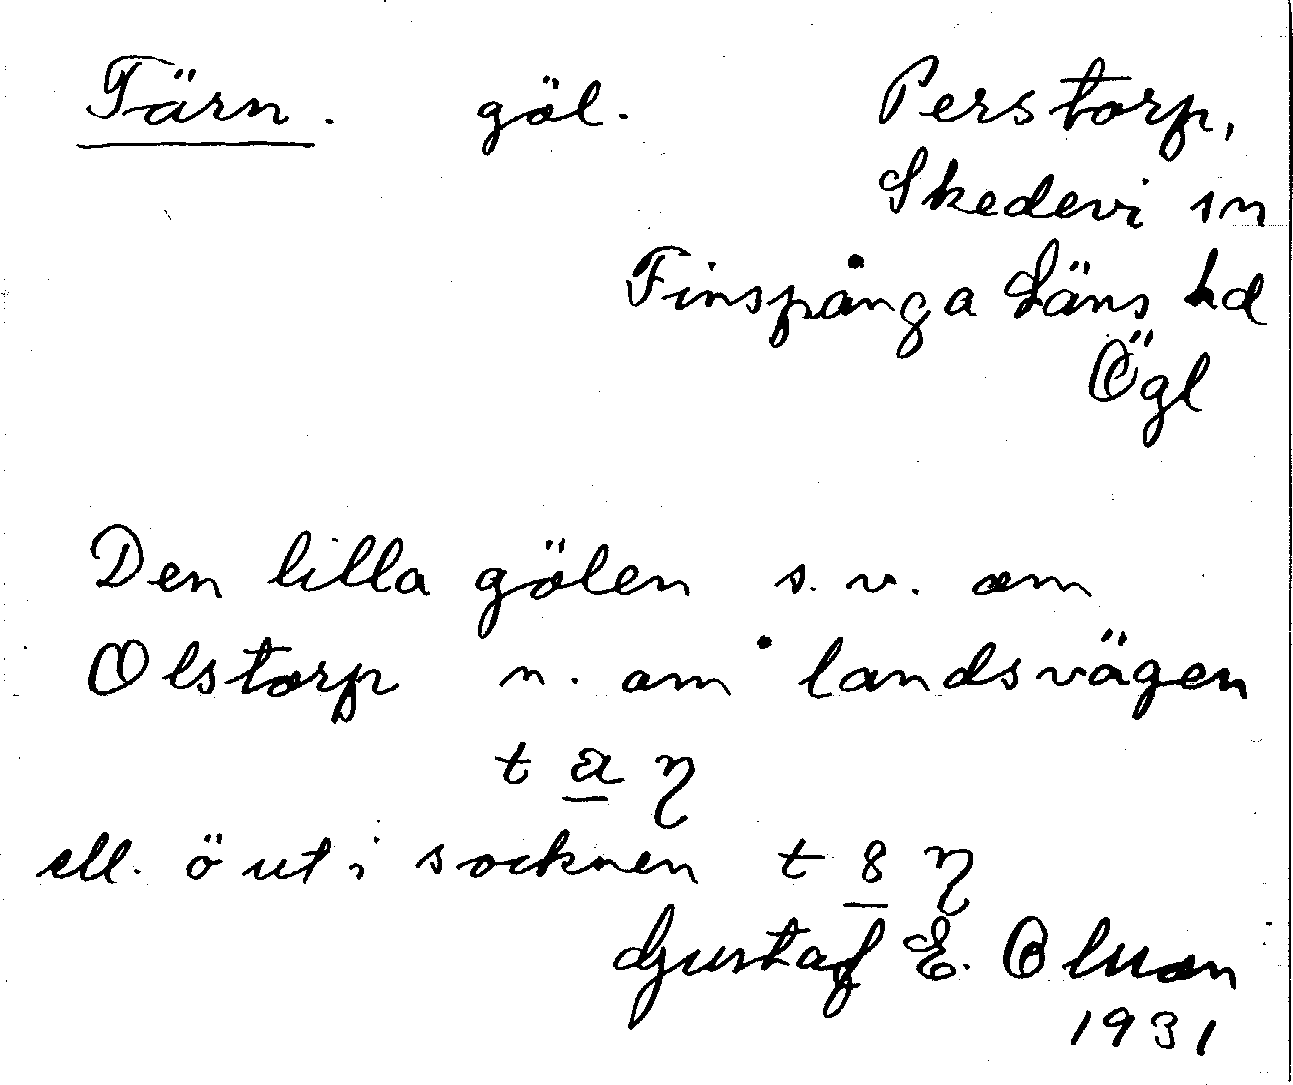 Tärn. göl. Perstorp,
Skedevi sn
Finspånga Läns hd
Ögl
Den lilla gölen s. v. om
Olstorp n. om landsvägen
t a η
ell. ö ut i socknen t 8 η
Gustaf E. Olson
1931